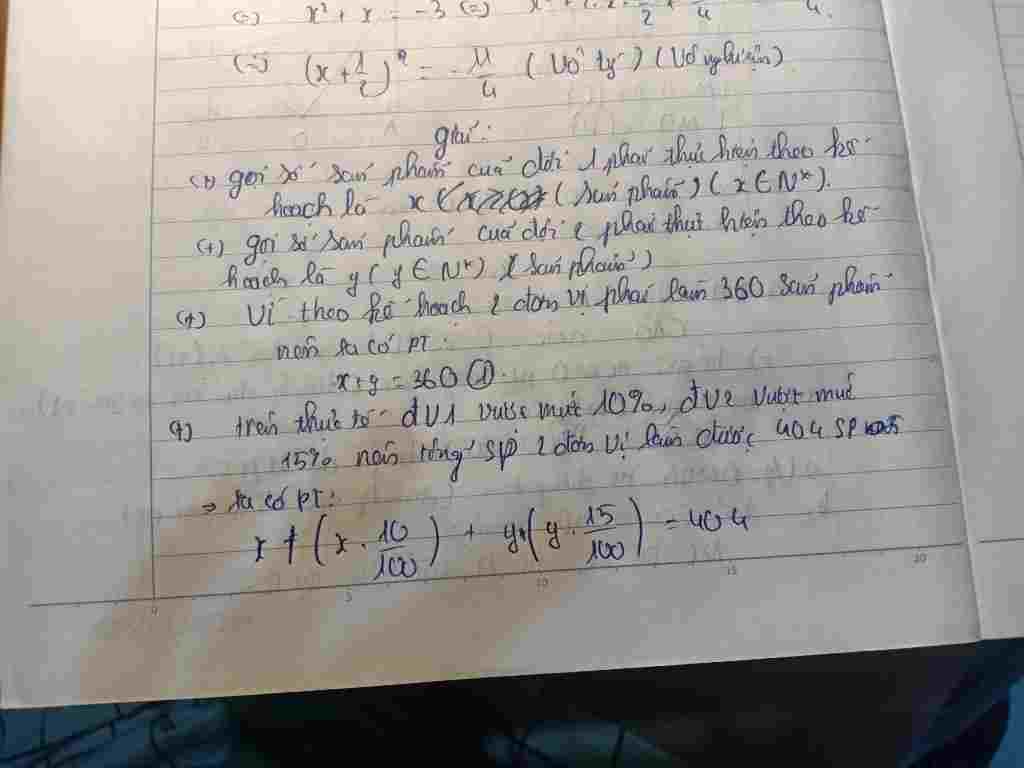 (=) x² + x = -3 (=)
(=) (x + 1/2)² = -11/4 (Vô lý) (Vô nghiệm)
giải:
(+) gọi số sản phẩm của đội 1 phải thực hiện theo kế
hoạch là x (sản phẩm) (x ∈ N*).
(+) gọi số sản phẩm của đội 2 phải thực hiện theo kế
hoạch là y (y ∈ N*) (sản phẩm)
(+) Vì theo kế hoạch 2 đơn vị phải làm 360 sản phẩm
nên ta có PT:
x + y = 360 ①.
(+) trên thực tế đv1 vượt mức 10%, đv2 vượt mức
15% nên tổng sp 2 đơn vị làm được 404 SP
⇒ ta có PT:
x + (x . 10/100) + y + (y . 15/100) = 404
0 5 10 15 20